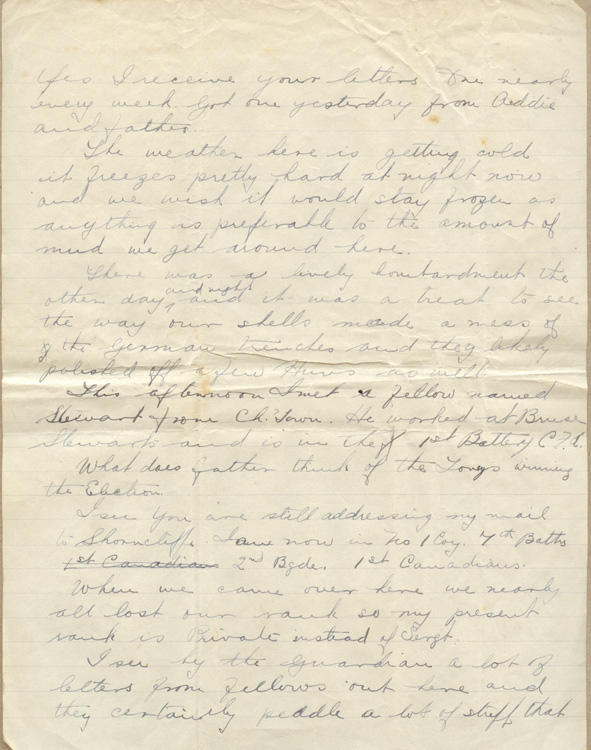 Yes I receive your letters One nearly
every week. Got one yesterday from Aeddie
and father.
The weather here is getting cold
it freezes pretty hard at night now
and we wish it would stay frozen as
anything is preferable to the amount of
mud we get around here.
There was a lively bombardment the
other day and night and it was a treat to see
the way our shells made a mess of
of the German trenches and they likely
polished off a few Huns as well.
This afternoon I met a fellow named
Stewart from Ch. Town. He worked at Bruce
Stewarts and is in the 1st Battery C.F.A.
What does father think of the Torys winning
the Election.
I see you are still addressing my mail
to Shorncliffe. I am now in No 1 Coy. 7th Battn
1st Canadians 2nd Bgde. 1st Canadians.
When we came over here we nearly
all lost our rank so my present
rank is Private instead of Sergt.
I see by the Guardian a lot of
letters from fellows out here and
they certainly peddle a lot of stuff that